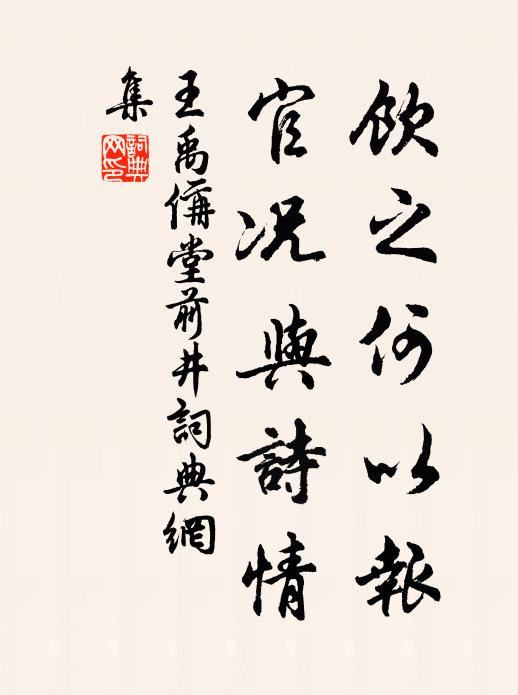 飲之何以報
官况與詩情
王禹偁堂前井詞典網
集
詞典
网印